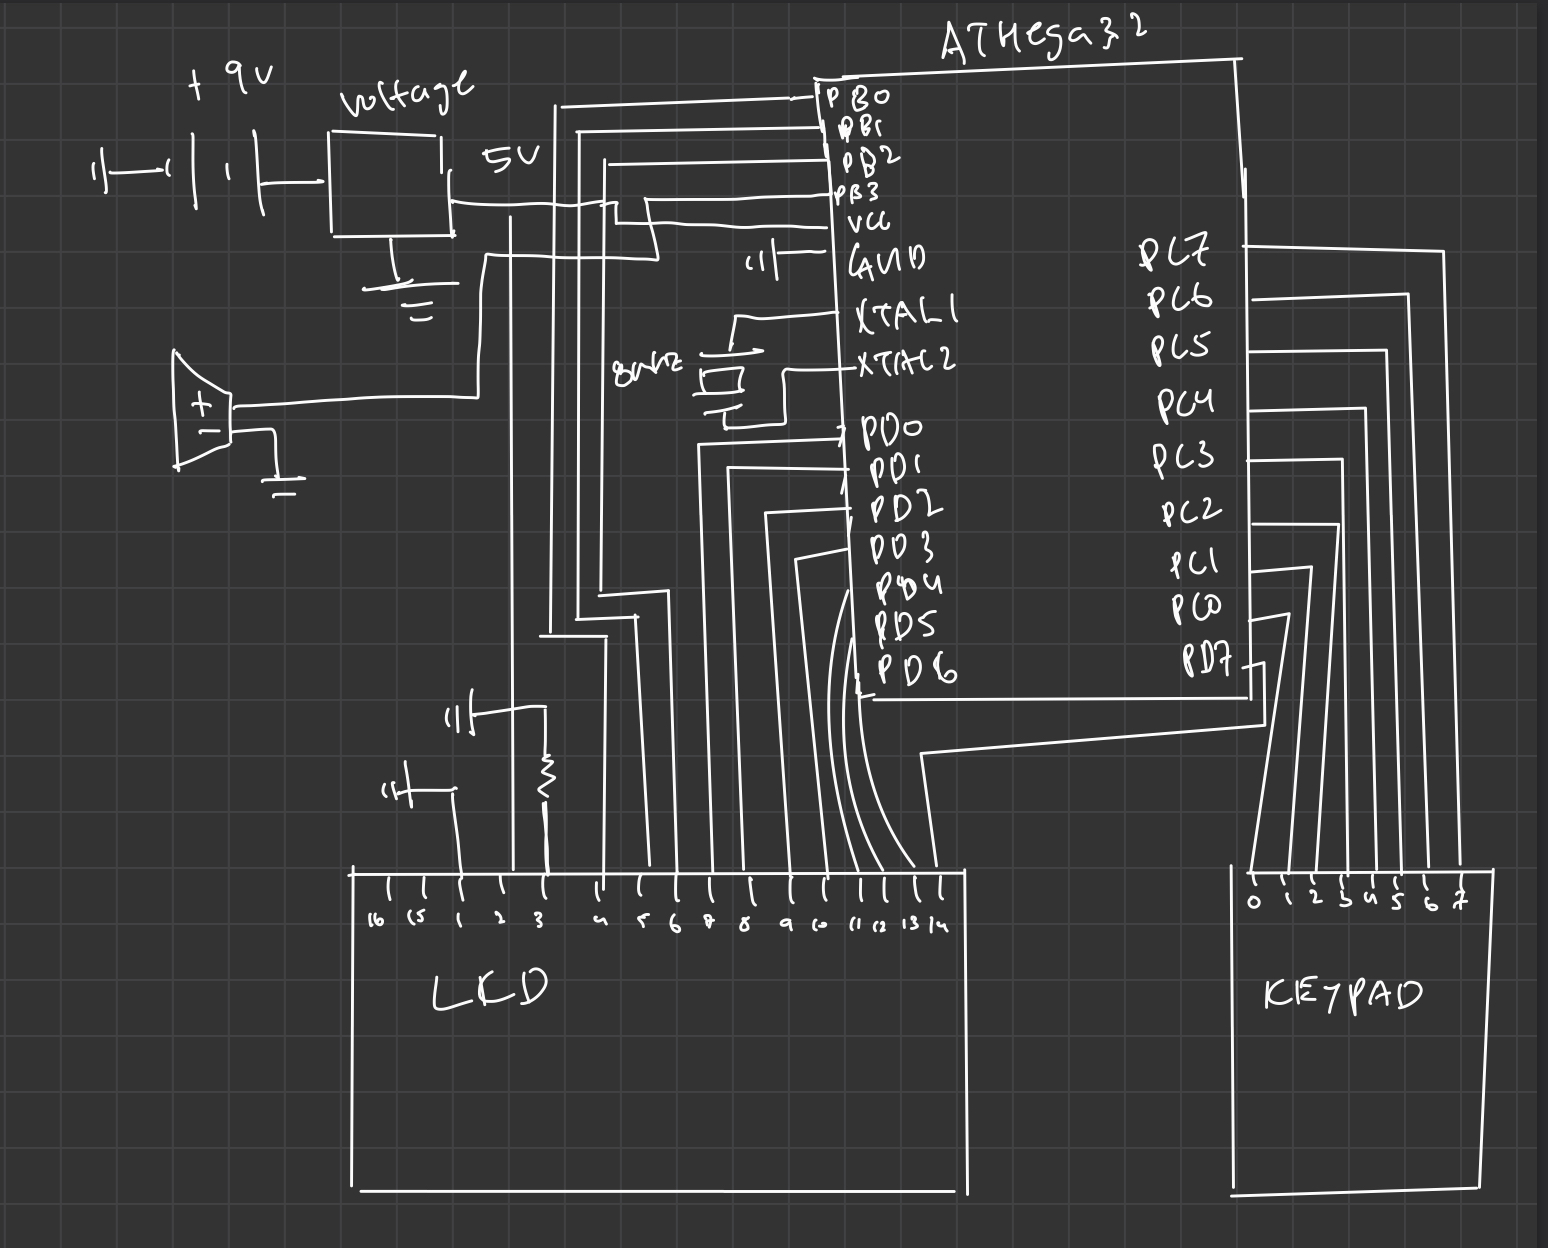 ATMega32
+ 9V
Voltage
5V
PB0
PB1
PB2
PB3
VCC
GND
XTAL1
XTAL2
8MHz
PD0
PD1
PD2
PD3
PD4
PD5
PD6
PC7
PC6
PC5
PC4
PC3
PC2
PC1
PC0
PD7
+
-
16 15 1 2 3 4 5 6 7 8 9 10 11 12 13 14
LCD
0 1 2 3 4 5 6 7
KEYPAD